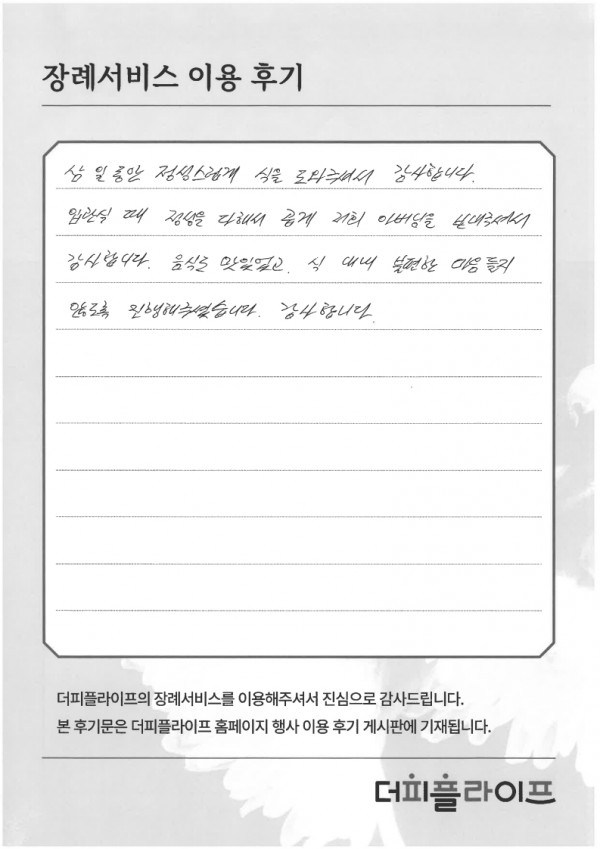 장례서비스 이용 후기
삼 일 동안 정성스럽게 식을 도와주셔서 감사합니다.
입관식 때 정성을 다해서 곱게 저희 아버님을 보내주셔서
감사합니다. 음식도 맛있었고, 식 내내 불편한 마음 들지
않도록 진행해주셨습니다. 감사합니다.
더피플라이프의 장례서비스를 이용해주셔서 진심으로 감사드립니다.
본 후기문은 더피플라이프 홈페이지 행사 이용 후기 게시판에 기재됩니다.
더피플라이프